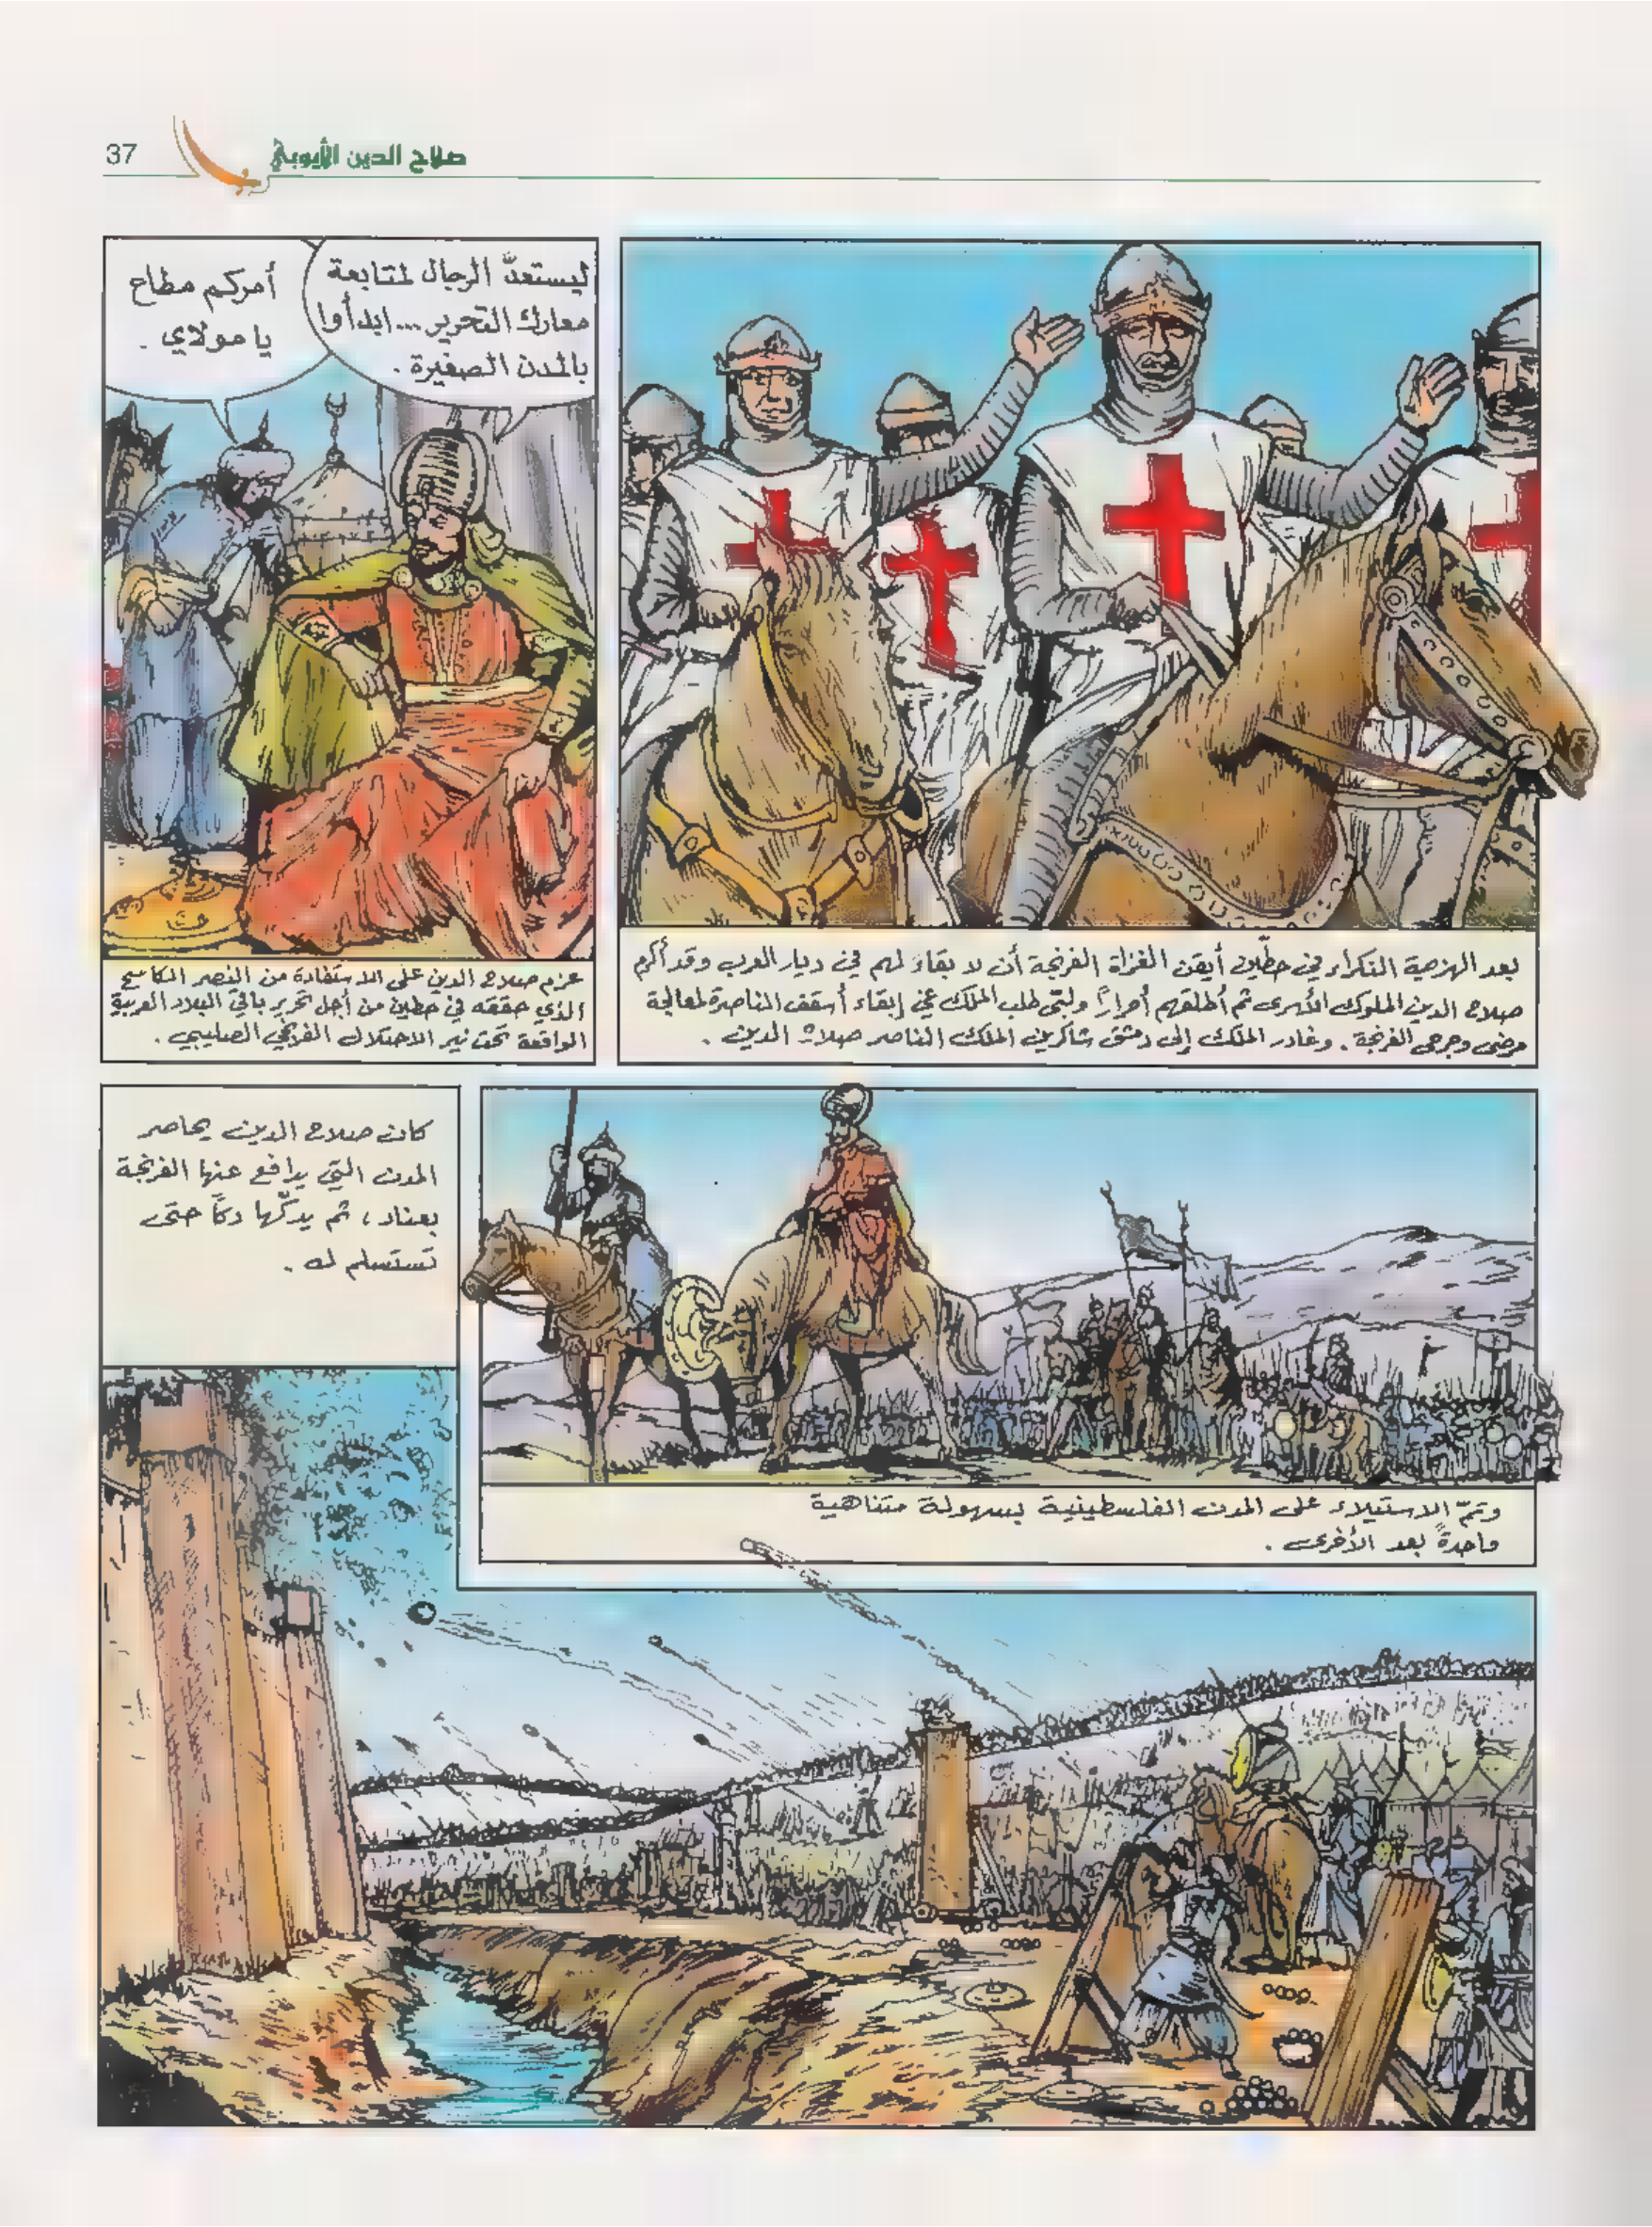 37
صلاح الدين الأيوبي
بعد الهزيمة النكراء في حطّين أيقن الغزاة الفرنجة أن لا بقاءَ لهم في ديار العرب وقد أكرم
صلاح الدين الملوك الأسرى ثم أطلقهم أحراراً ولبّى طلب الملك في إبقاء أسقف الناصرة لمعالجة
مرضى وجرحى الفرنجة . وغادر الملك إلى دمشق شاكرين الملك الناصر صلاح الدين .
ليستعدّ الرجال لمتابعة
معارك التحرير... ابدأوا
بالمدن الصغيرة .
أمركم مطاع
يا مولاي .
عزم صلاح الدين على الاستفادة من النصر الكاسح
الذي حققه في حطين من أجل تحرير باقي البلاد العربية
الواقعة تحت نير الاحتلال الفرنجي الصليبي .
وتمّ الاستيلاء على المدن الفلسطينية بسهولة متناهية
واحدةً بعد الأخرى .
كان صلاح الدين يحاصر
المدن التي يدافع عنها الفرنجة
بعناد ، ثم يدكّها دكّاً حتى
تستسلم له .